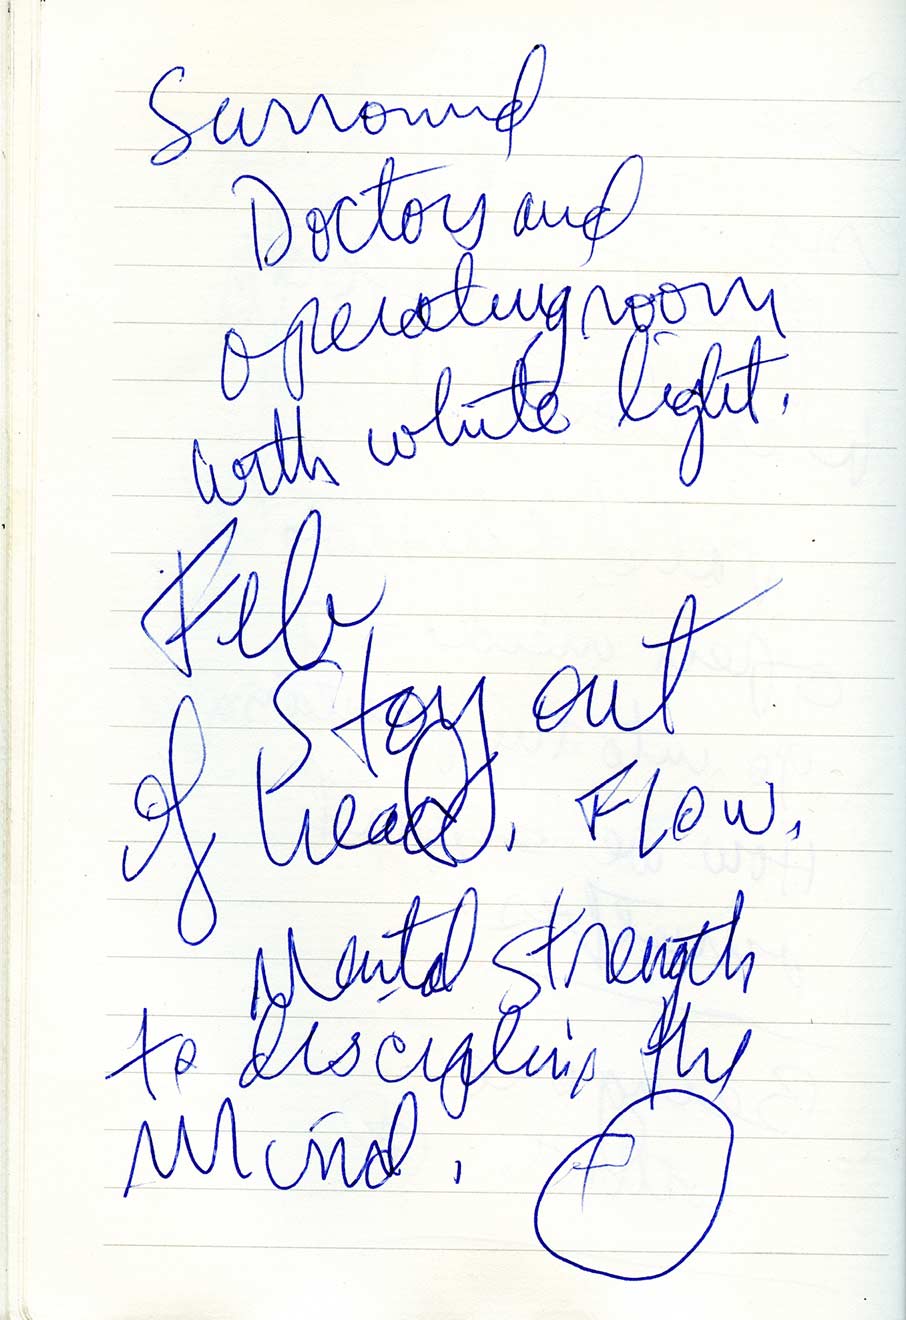 Surround
Doctors and
operating room
with white light.
Feb
Stay out
of head. Flow.
Mental Strength
to discipline the
Mind.